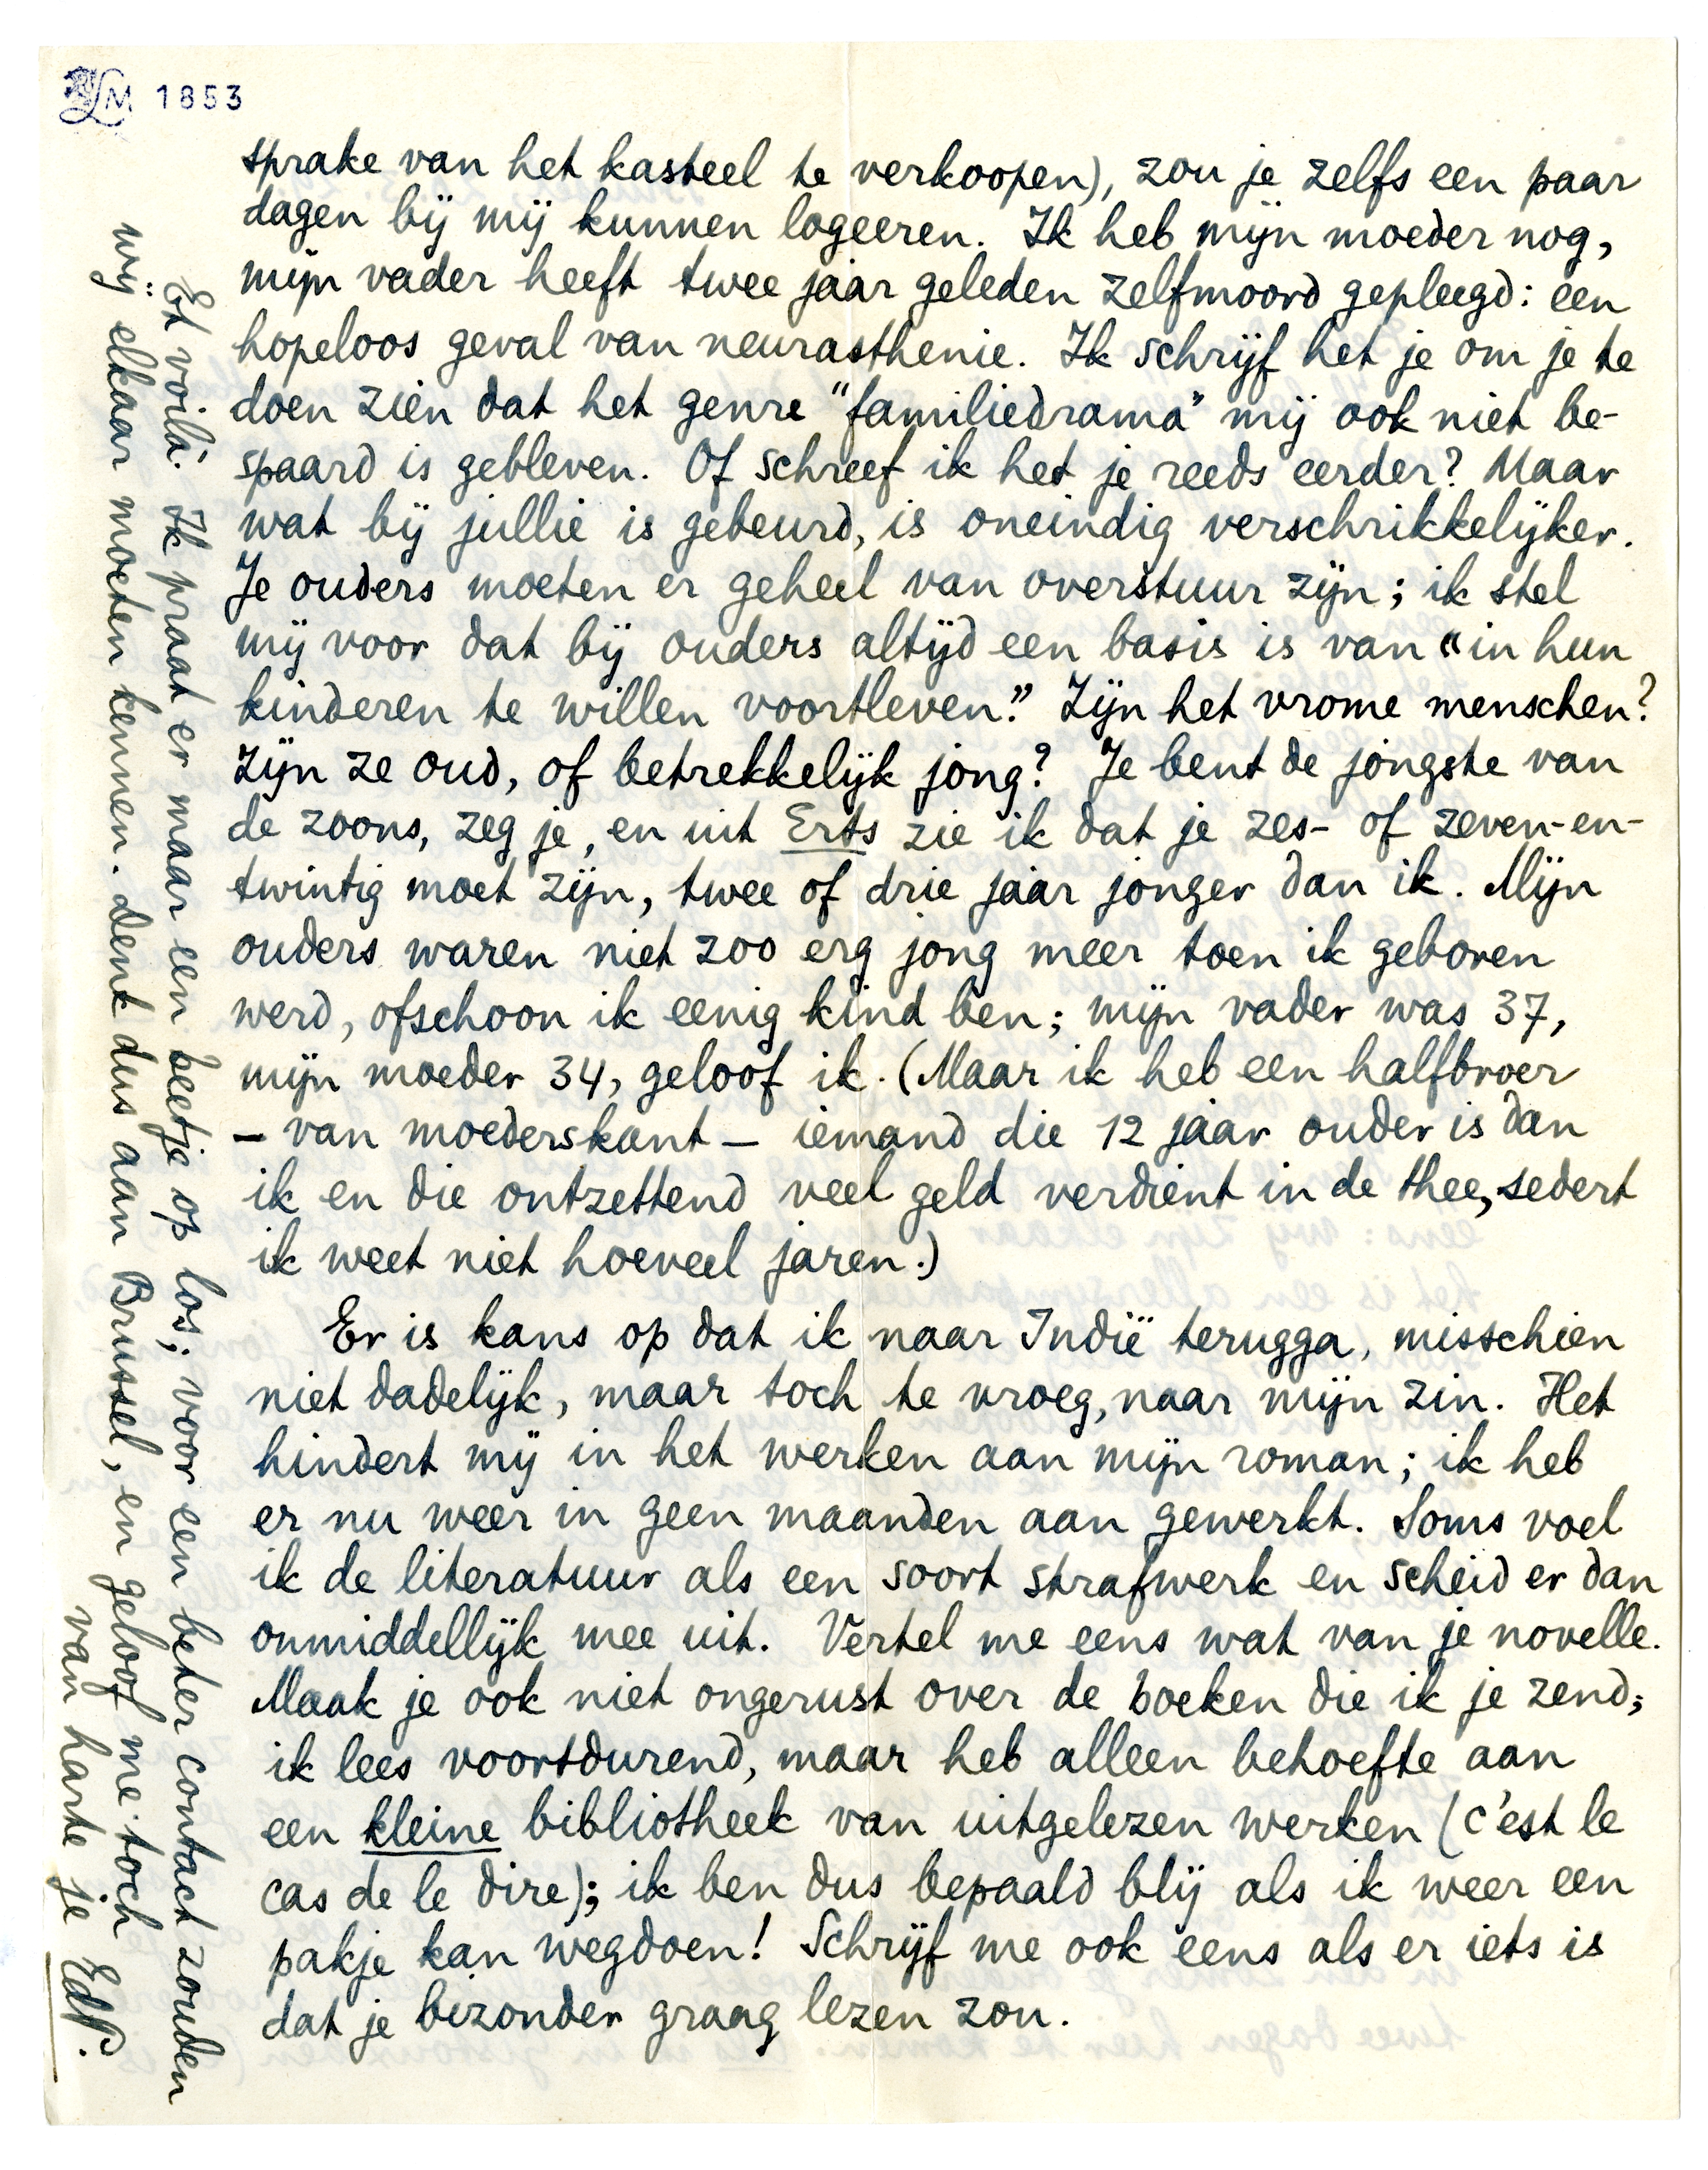 LM 1853
sprake van het kasteel te verkoopen), zou je zelfs een paar
dagen bij mij kunnen logeeren. Ik heb mijn moeder nog,
mijn vader heeft twee jaar geleden zelfmoord gepleegd: een
hopeloos geval van neurasthenie. Ik schrijf het je om je te
doen zien dat het genre "familiedrama" mij ook niet be-
spaard is gebleven. Of schreef ik het je reeds eerder? Maar
wat bij jullie is gebeurd, is oneindig verschrikkelijker.
Je ouders moeten er geheel van overstuur zijn; ik stel
mij voor dat bij ouders altijd een basis is van "in hun
kinderen te willen voortleven." Zijn het vrome menschen?
Zijn ze oud, of betrekkelijk jong? Je bent de jongste van
de zoons, zeg je, en uit Erts zie ik dat je zes- of zeven-en-
twintig moet zijn, twee of drie jaar jonger dan ik. Mijn
ouders waren niet zoo erg jong meer toen ik geboren
werd, ofschoon ik eenig kind ben; mijn vader was 37,
mijn moeder 34, geloof ik. (Maar ik heb een halfbroer
– van moederskant – iemand die 12 jaar ouder is dan
ik en die ontzettend veel geld verdient in de thee, sedert
ik weet niet hoeveel jaren.)
Er is kans op dat ik naar Indië terugga, misschien
niet dadelijk, maar toch te vroeg, naar mijn zin. Het
hindert mij in het werken aan mijn roman; ik heb
er nu weer in geen maanden aan gewerkt. Soms voel
ik de literatuur als een soort strafwerk en scheid er dan
onmiddellijk mee uit. Vertel me eens wat van je novelle.
Maak je ook niet ongerust over de boeken die ik je zend;
ik lees voortdurend, maar heb alleen behoefte aan
een kleine bibliotheek van uitgelezen werken (c'est le
cas de le dire); ik ben dus bepaald blij als ik weer een
pakje kan wegdoen! Schrijf me ook eens als er iets is
dat je bizonder graag lezen zou.
Et voilà. Ik praat er maar een beetje op los; voor een beter contact zouden
wij elkaar moeten kennen. Denk dus aan Brussel, en geloof me toch
van harte je EdP.